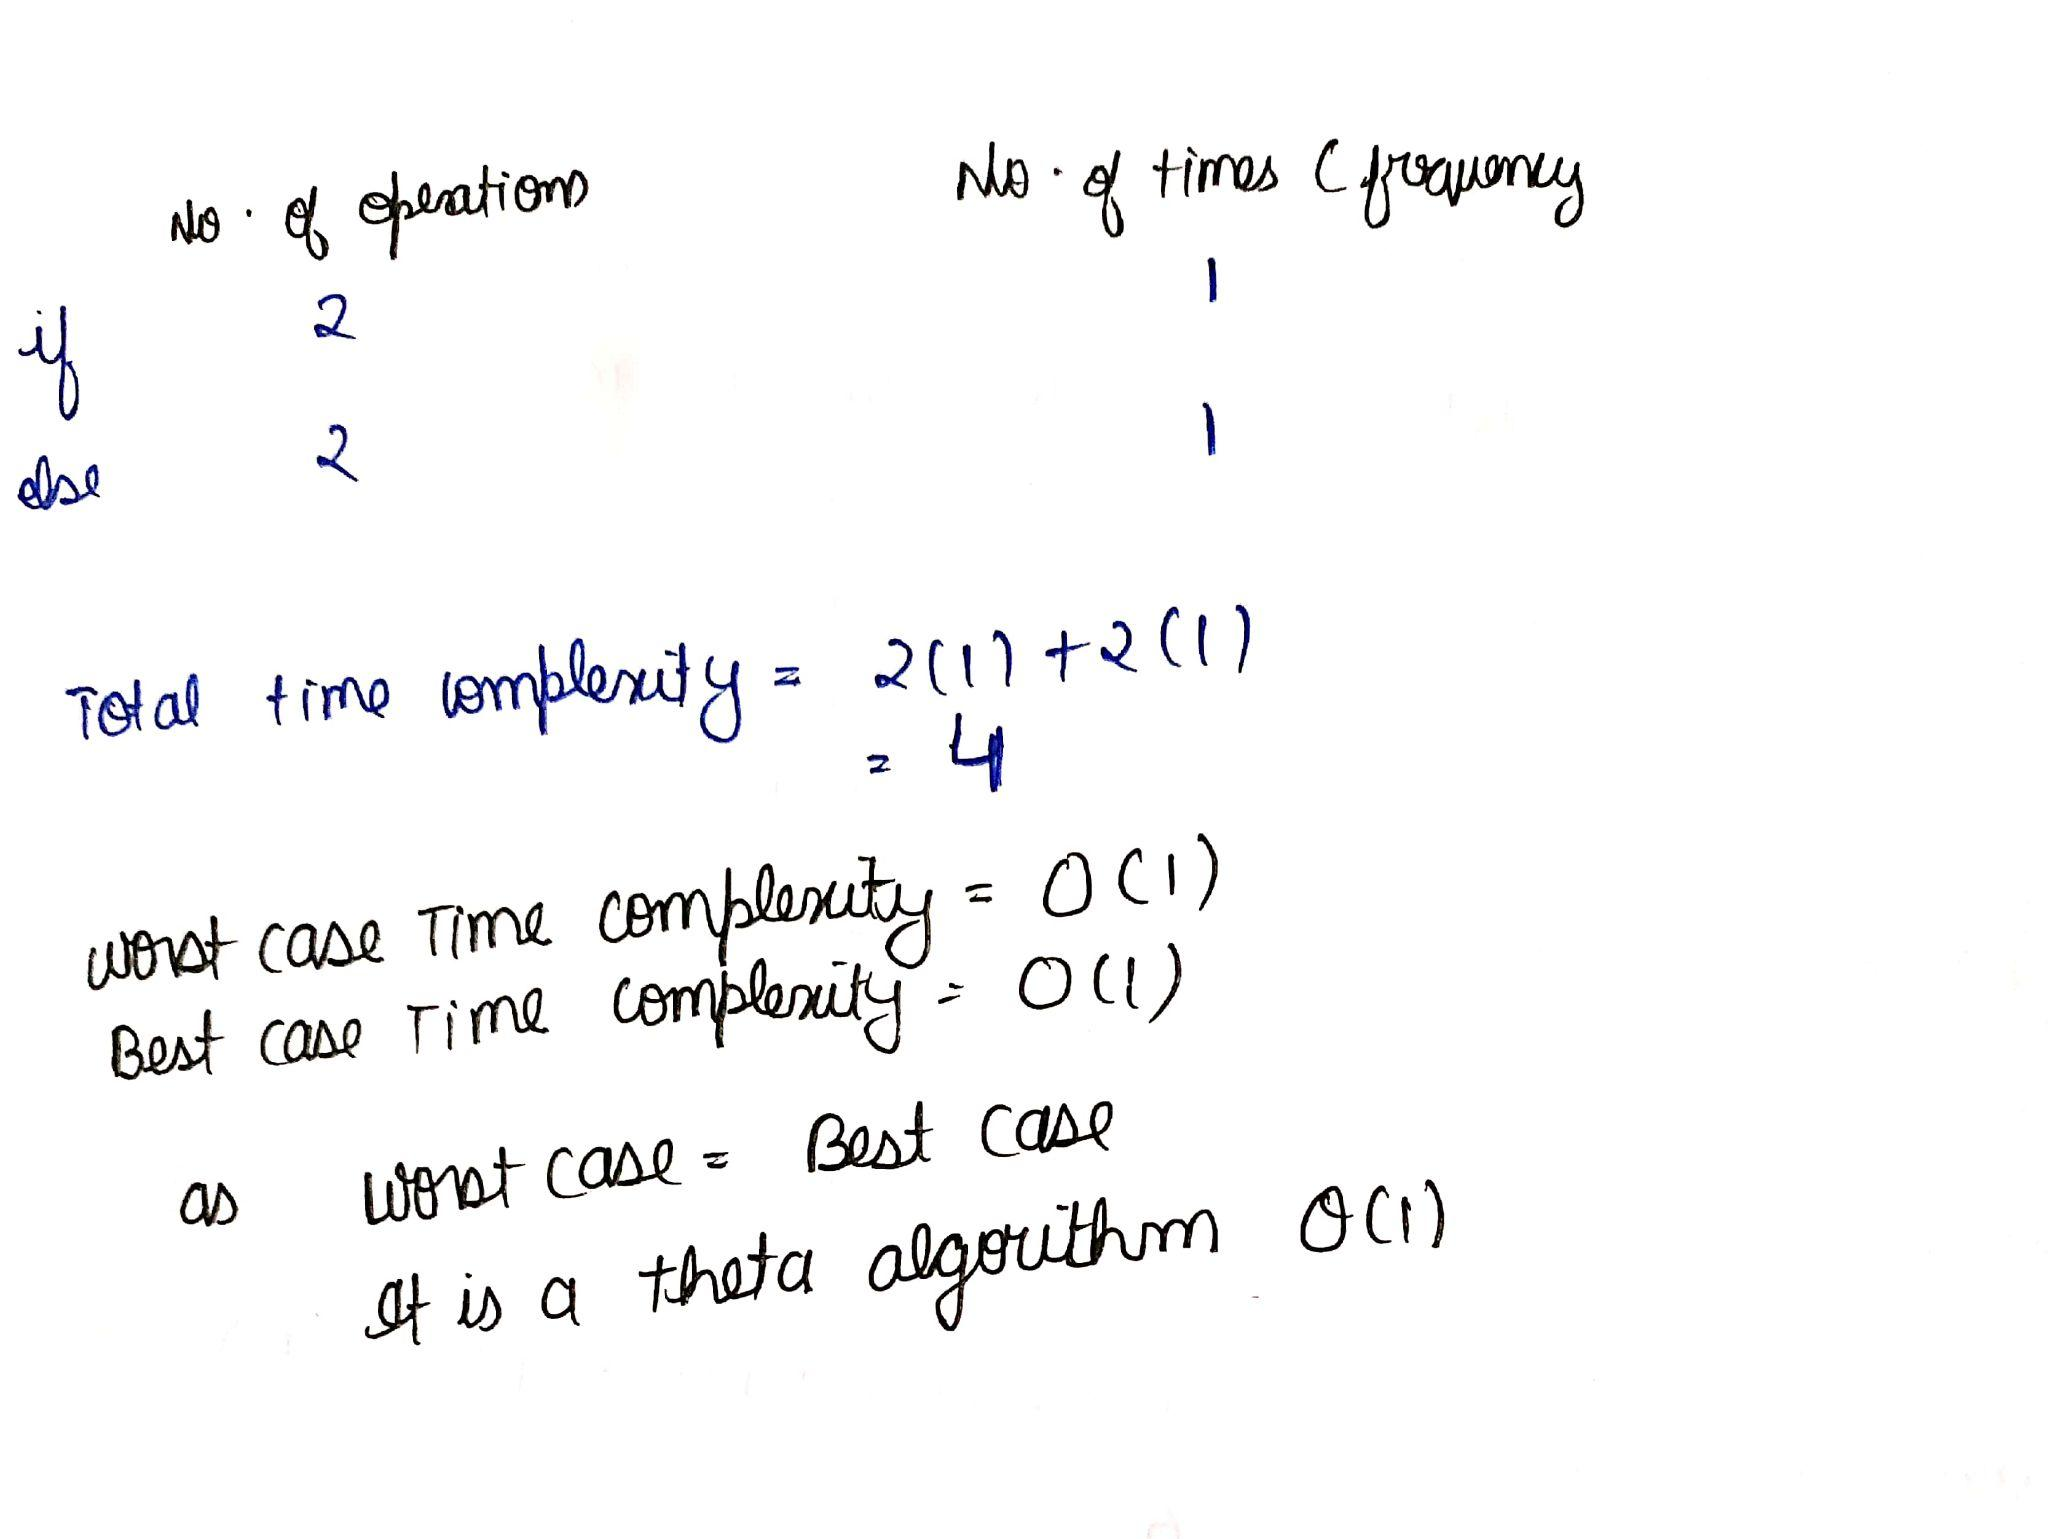 No. of operations No. of times (frequency
if 2 1
else 2 1
Total time complexity = 2(1) + 2(1)
= 4
worst case Time complexity = O(1)
Best case Time complexity = O(1)
as worst case = Best case
It is a theta algorithm θ(1)